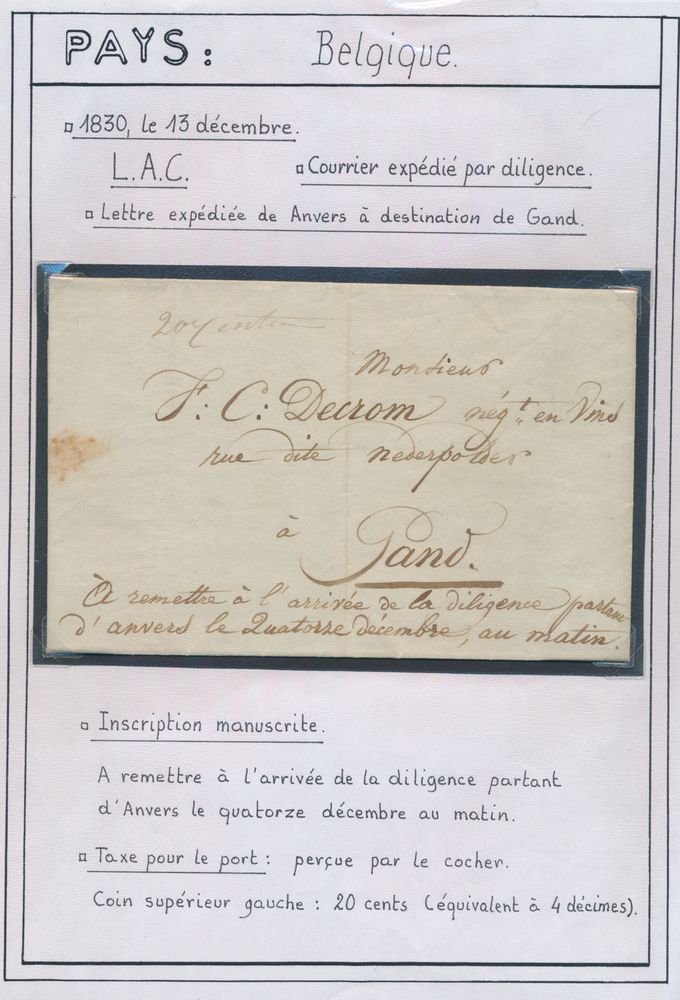 PAYS: Belgique.
1830, le 13 décembre.
L.A.C. Courrier expédié par diligence.
Lettre expédiée de Anvers à destination de Gand.
20 Cents
Monsieur
F: C: Decrom nég.t en Vins
rue dite nederpolder
à Gand.
À remettre à l'arrivée de la diligence partant
d'anvers le Quatorze décembre, au matin.
Inscription manuscrite.
A remettre à l'arrivée de la diligence partant
d'Anvers le quatorze décembre au matin.
Taxe pour le port: perçue par le cocher.
Coin supérieur gauche : 20 cents (équivalent à 4 décimes).